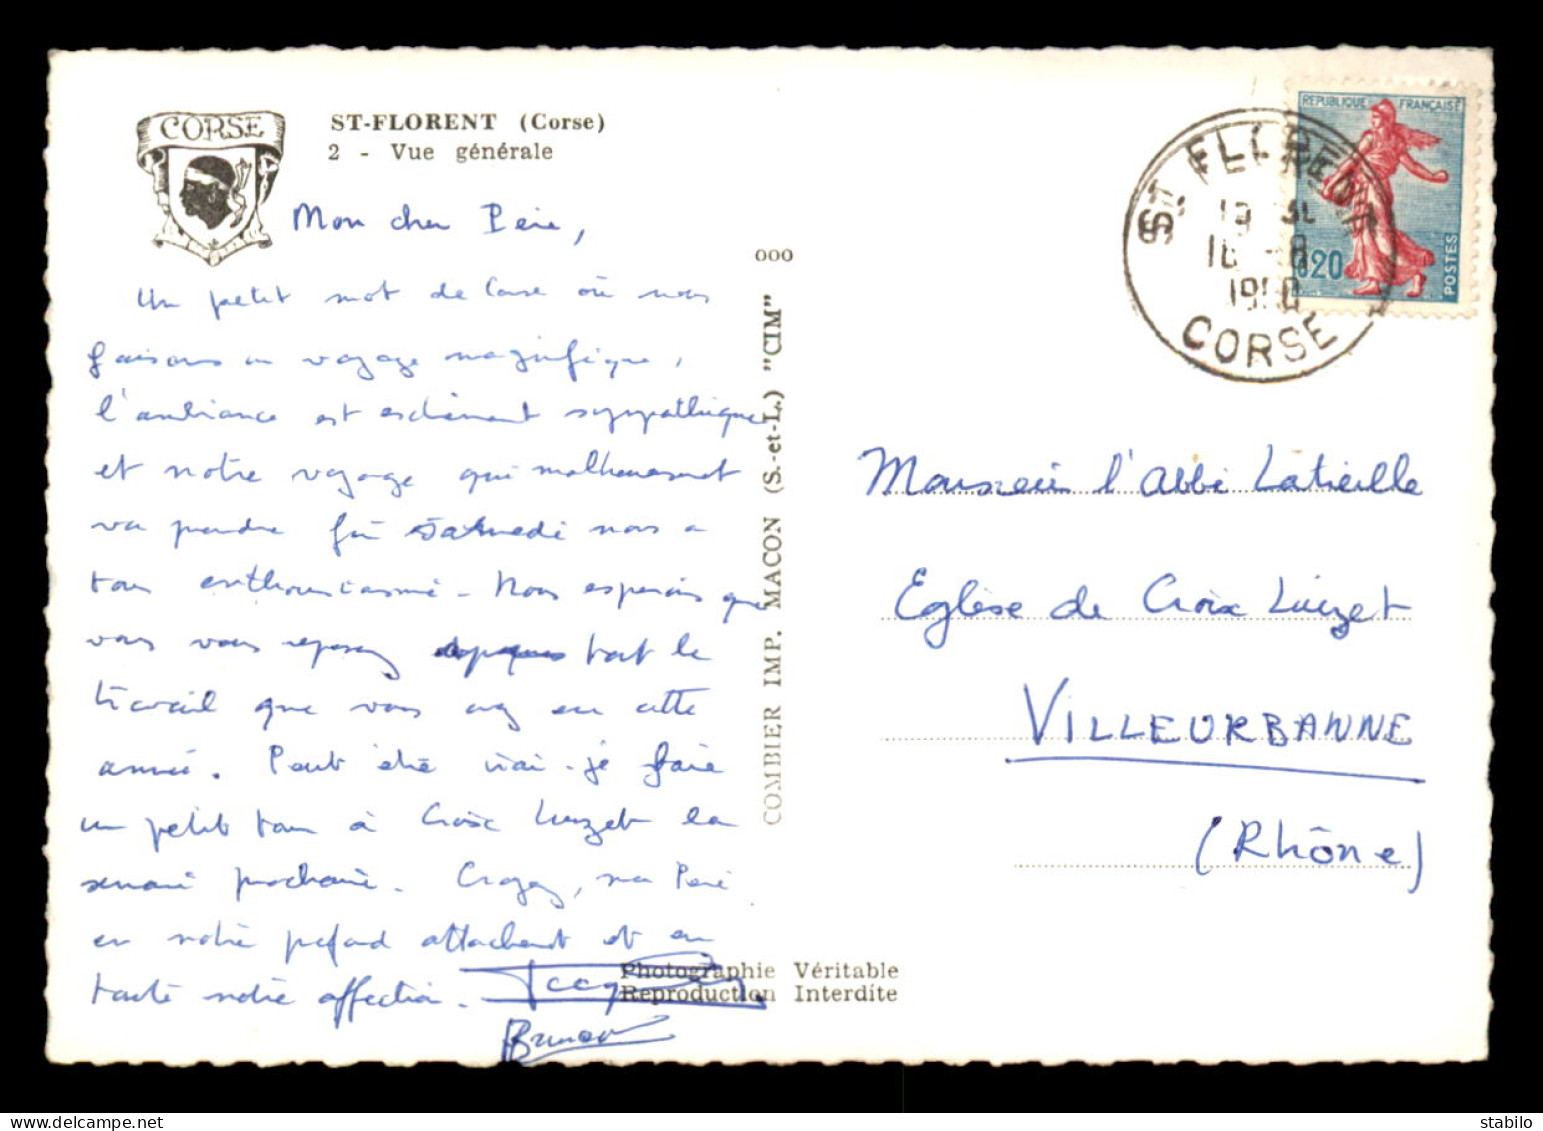 CORSE
ST-FLORENT (Corse)
2 - Vue générale
Mon cher Père,
Un petit mot de Corse où nous
faisons un voyage magnifique,
l'ambiance est extrêmement sympathique
et notre voyage qui malheureusement
va prendre fin Samedi nous a
tous enthousiasmé - Nous espérons que
vous vous reposez tout le
travail que vous avez eu cette
année. Peut être irai-je faire
un petit tour à Croix Luizet la
semaine prochaine. Croyez, mon Père
en notre profond attachement et en
toute notre affection.
Bruno
ooo
COMBIER IMP. MACON (S.-et-L.) "CIM"
Photographie Véritable
Reproduction Interdite
REPUBLIQUE FRANÇAISE
0,20
POSTES
ST FLORENT
18 - 8
1960
CORSE
Monsieur l'Abbé Latreille
Eglise de Croix Luizet
VILLEURBANNE
(Rhône)
delcampe.net
stabilo